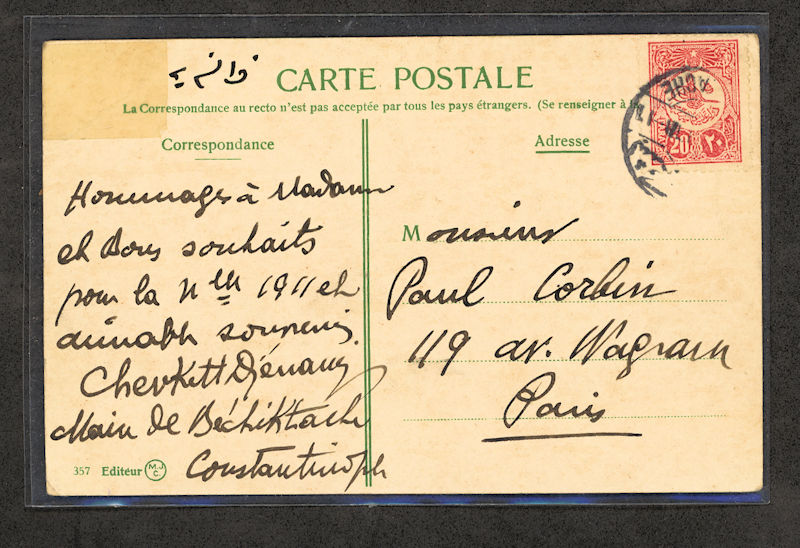 CARTE POSTALE
La Correspondance au recto n'est pas acceptée par tous les pays étrangers. (Se renseigner à la
Correspondance
Adresse
Hommages à Madame
et Bons souhaits
pour la nlle 1911 et
aimable souvenir
Chevkett Djénany
Maire de Béchiktache
Constantinople
Monsieur
Paul Corbin
119 av. Wagram
Paris
357 Editeur M.J.C.
20 ٢٠